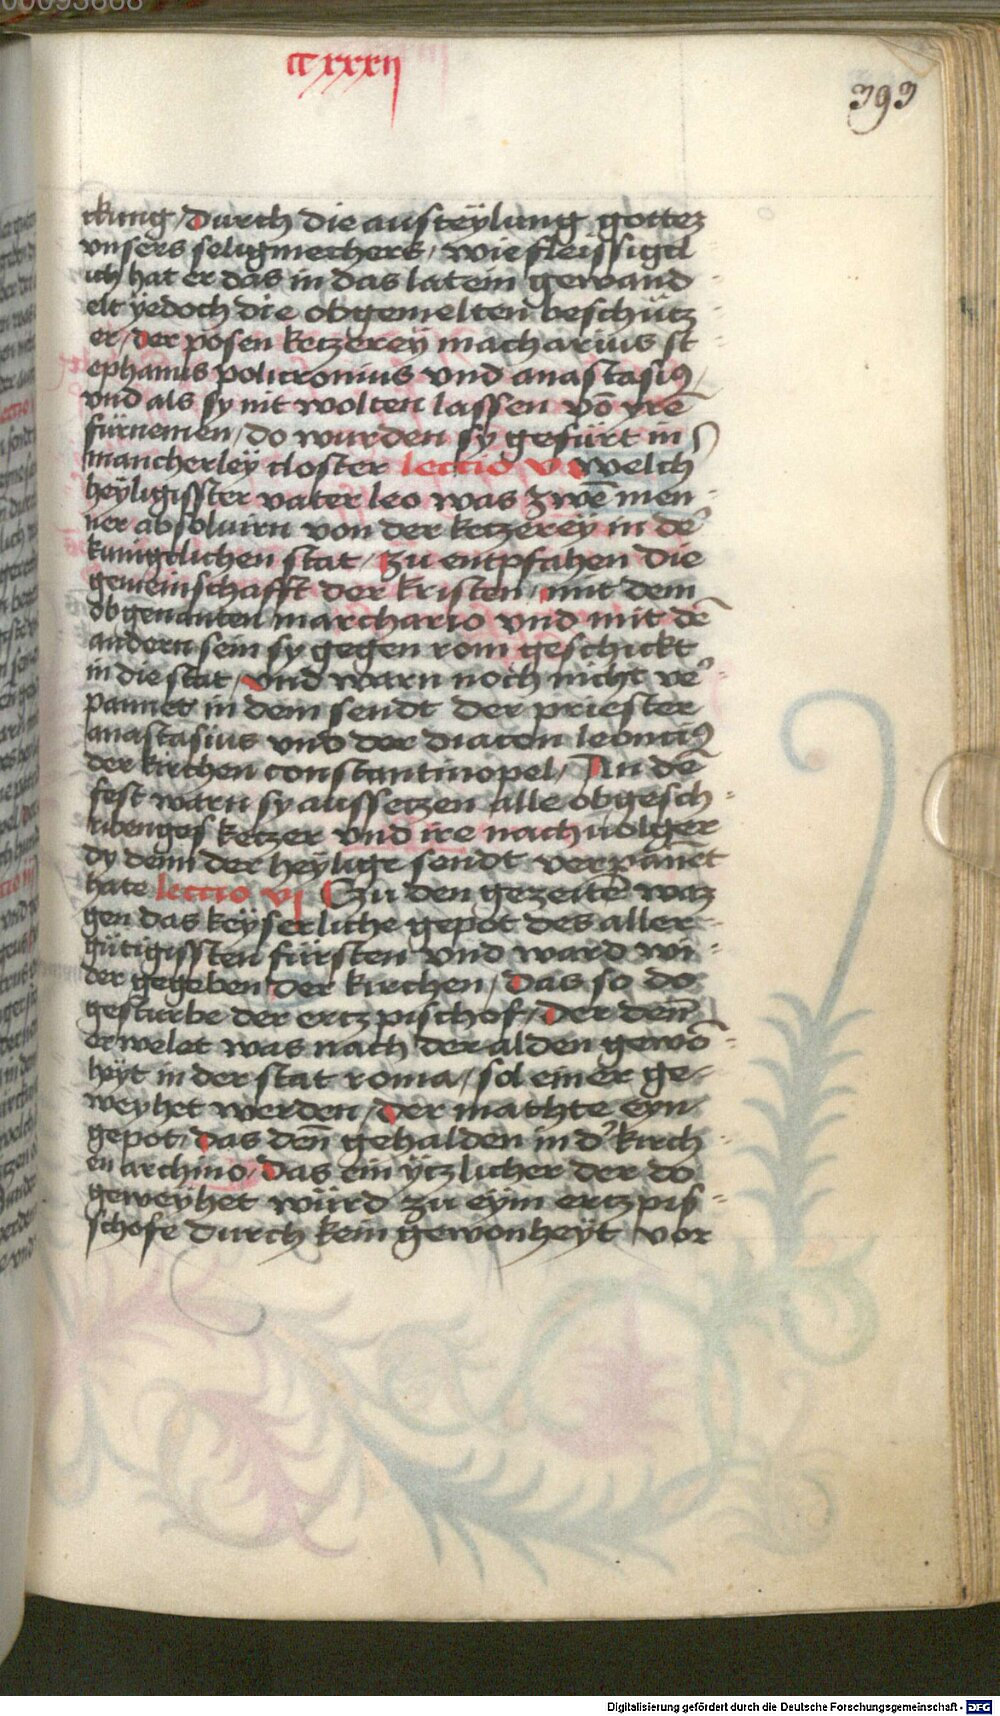 00093868
ccxxxij
393
ckung / durch die austeylung gottez
vnsers seligmechers / wie fleissigcl
ich hat er das in das latein gewand
elt yedoch die obgemelten beschütz
er / der posen ketzerey macharius st
ephanus policronius vnd anastasiꝯ
vnd als sy nit wolten lassen vō yrē
fürnemen / do wurden sy gefürt in
mancherley closter lectio v welch
heyligisster vater leo was zwē men
ner absoluirn von der ketzerey in de᷒
kunigclichen stat / zu entpfahen die
gemeinschafft der kristen / mit dem
obgenanten marchario vnd mit dē
andern sein sy gegen rom geschickt
in die stat / vnd warn noch nicht ve᷒
pannet in dem sendt der priester
anastasius vnd der diacon leonciꝯ
der kirchen constantinopel / An dē
fest warn sy aussetzen alle obgesch
ketzer vnd ire nachuolger
dy denn der heylige sendt verpānet
hate lectio vj Czu den gezeitē waz
gen das keyserliche gepot des aller
gütigissten fürsten vnd ward wi
der gegeben der kirchen / Das so do
gesturbe der ertzpischof / der den̄
erwelet was nach der alden gewō
heyt in der stat roma / sol einer ge
weyhet werden / der machte eyn
gepot / das den̄ gehalden in d᷒ kirch
en archino / Das ein ytzlicher der do
geweyhet würd zu eym ertzpis
schofe durch kein gewonheyt vor
Digitalisierung gefördert durch die Deutsche Forschungsgemeinschaft - DFG